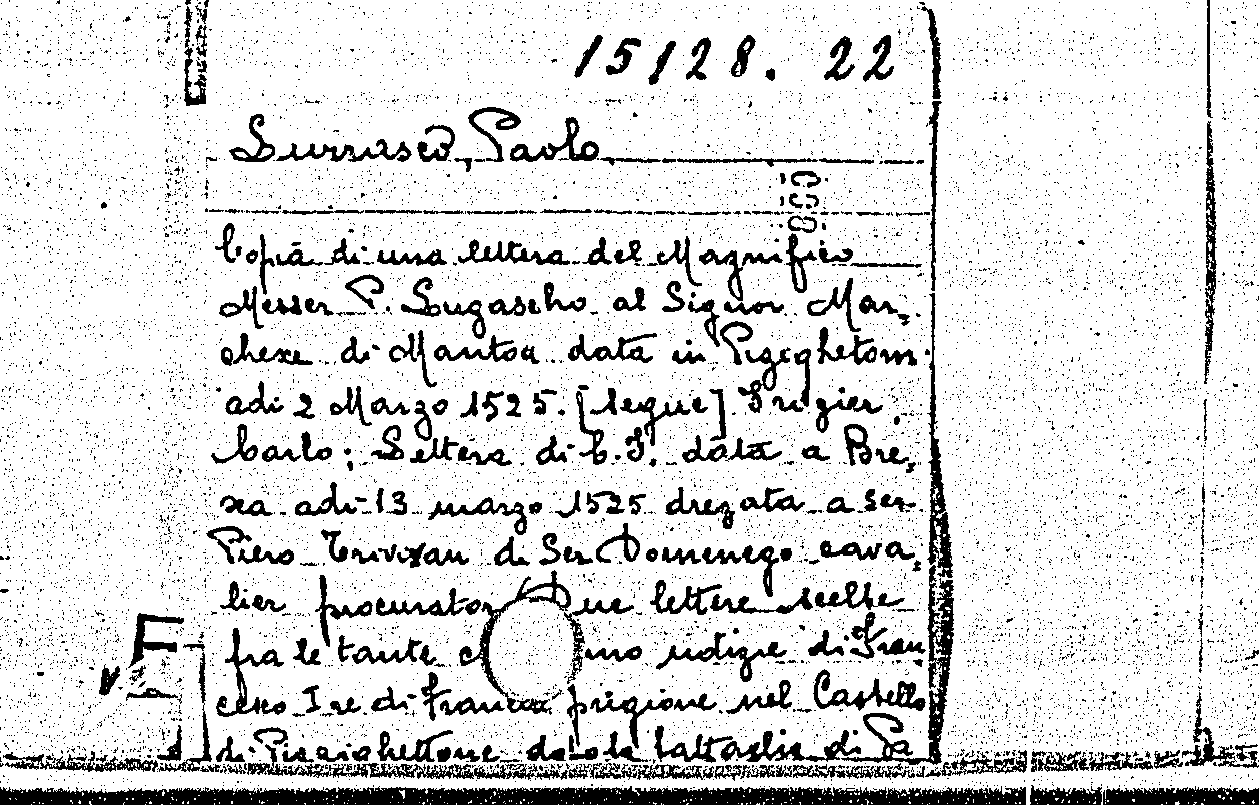 15128. 22
Lurrasco, Paolo
Copia di una lettera del Magnifico
Messer P. Lugascho al Signor Mar,
chexe di Mantoa data in Pizeghetom
adi 2 Marzo 1525. [segue]
Carlo; Lettera di C.T. data a Bre,
xa adi 13 marzo 1525 drezata a ser
Piero Trivixan di Ser Domenego cava,
lier procurator Due lettere scelte
fra le tante notizie di Fran
cesco I re di Francia prigione nel Castello
di Pizzighettone dopo la battaglia di Pa